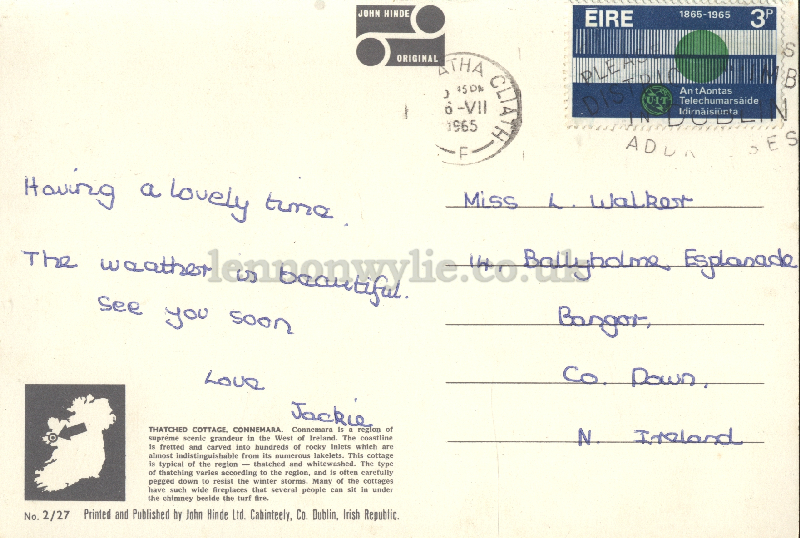 JOHN HINDE
ORIGINAL
ÉIRE 1865-1965 3P
AnTAontas
Telechumarsáide
Idirnáisiúnta
UIT
ATHA CLIATH
6-VII
1965
F
PLEASE
IN DUBLIN
Having a lovely time.
The weather is beautiful.
See you soon
Love
Jackie
Miss L. Walker
14, Ballyholme Esplanade
Bangor,
Co. Down,
N Ireland
lennonwylie.co.uk
THATCHED COTTAGE, CONNEMARA. Connemara is a region of
supreme scenic grandeur in the West of Ireland. The coastline
is fretted and carved into hundreds of rocky inlets which are
almost indistinguishable from its numerous lakelets. This cottage
is typical of the region — thatched and whitewashed. The type
of thatching varies according to the region, and is often carefully
pegged down to resist the winter storms. Many of the cottages
have such wide fireplaces that several people can sit in under
the chimney beside the turf fire.
No. 2/27 Printed and Published by John Hinde Ltd. Cabinteely, Co. Dublin, Irish Republic.